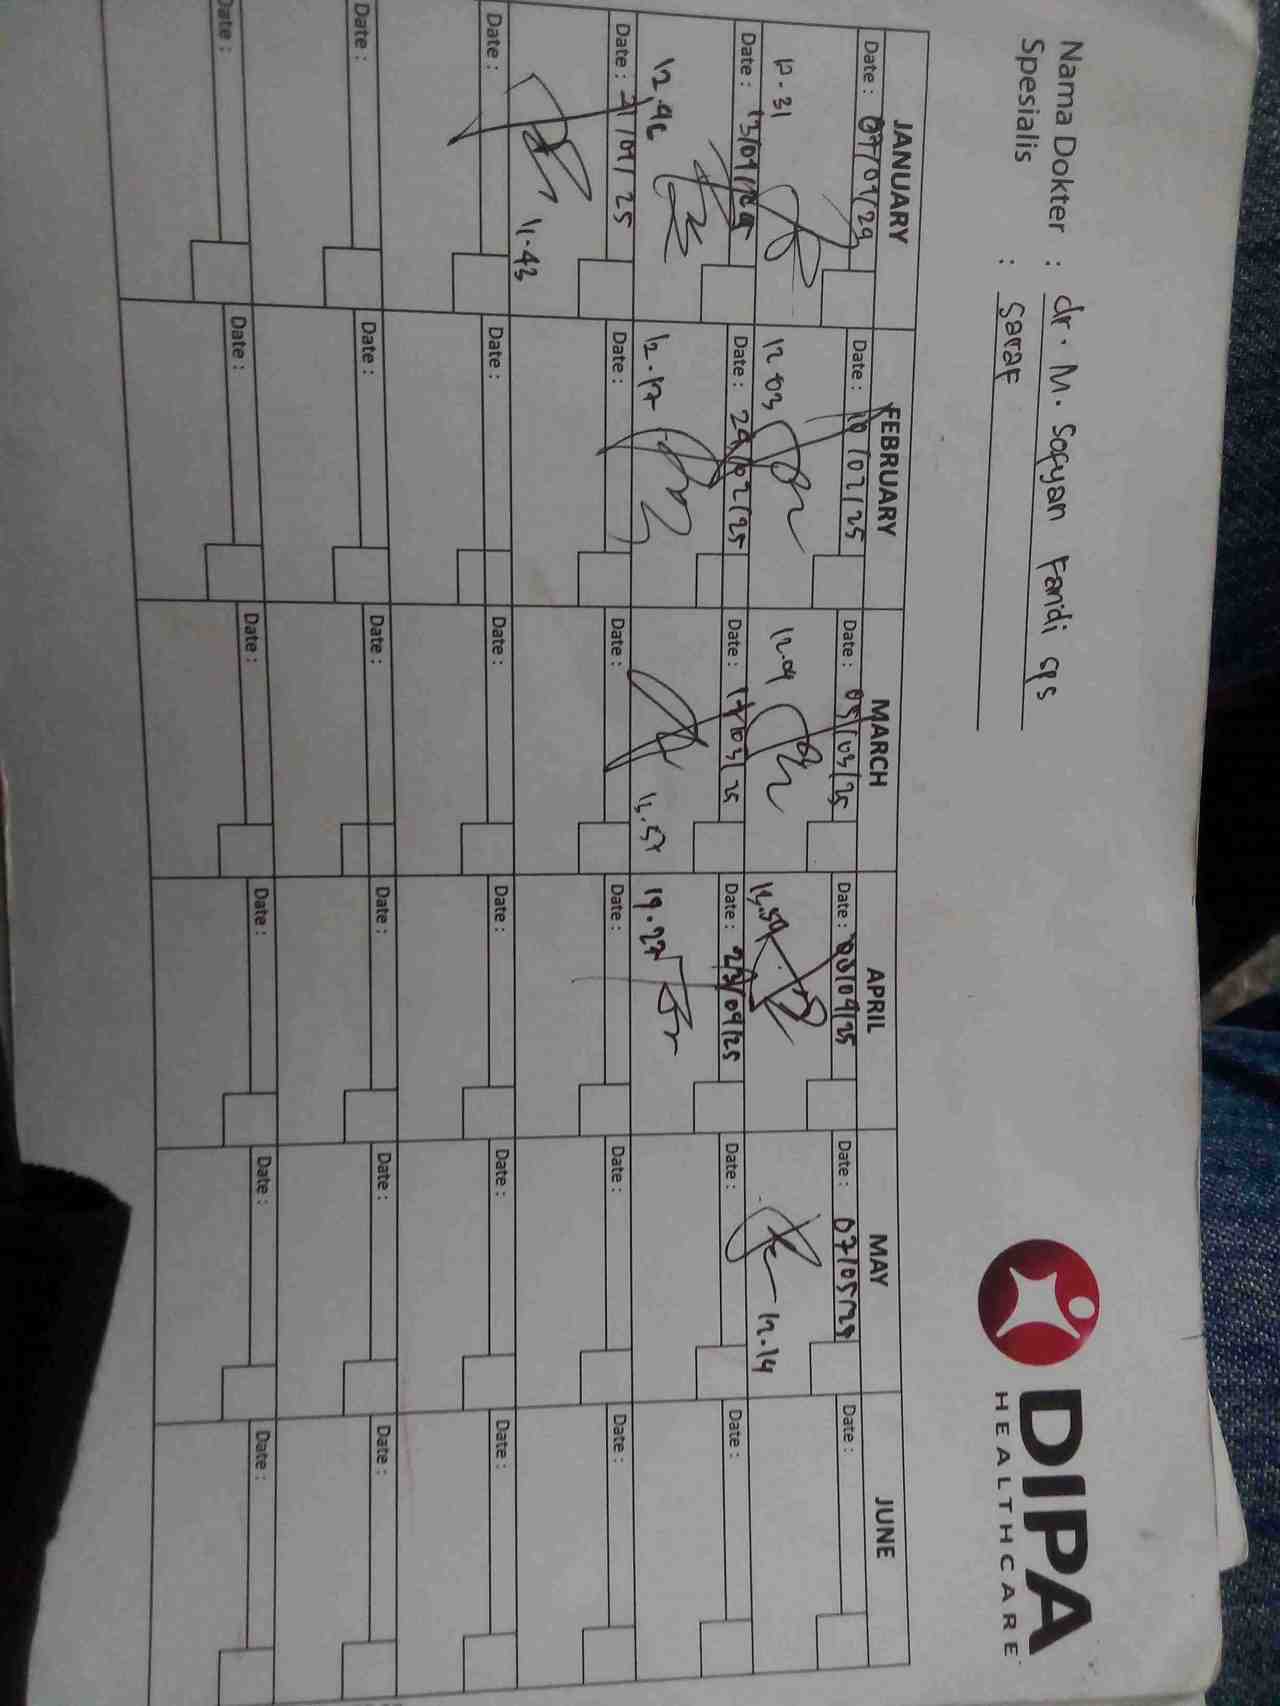 DIPA
HEALTHCARE
Nama Dokter : dr. M. Sofyan Faridi sps
Spesialis : Saraf
JANUARY FEBRUARY MARCH APRIL MAY JUNE
Date : 07/01/29 Date : 10/02/25 Date : 05/03/25 Date : 08/04/25 Date : 07/05/25 Date :
12.31 12.03 12.04 12.14
Date : 13/01/25 Date : 24/02/25 Date : 17/03/25 Date : 23/04/25 Date : Date :
12.46 12.17 19.27
Date : 21/01/25 Date : Date : Date : Date : Date :
11.43
Date : Date : Date : Date : Date : Date :
Date : Date : Date : Date : Date : Date :
Date : Date : Date : Date : Date : Date :